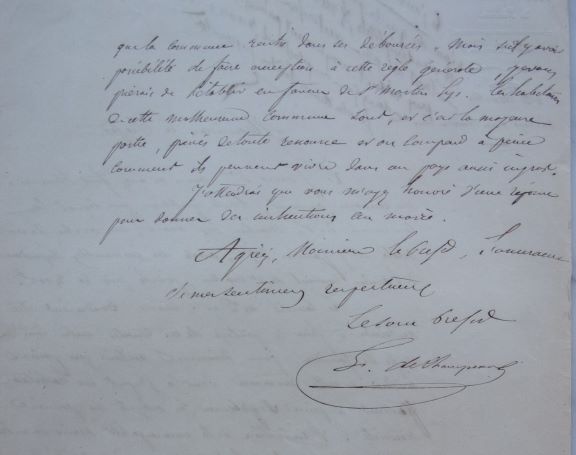 que la commune rentre dans ses déboursés. Mais s'il y avait
possibilité de faire exception à cette règle générale, je vous
prierais de l'établir en faveur de St Martin Lys. Les habitans
de cette malheureuse commune sont, et c'est la majeure
partie, privés de toute ressource et on comprend à peine
comment ils peuvent vivre dans un pays aussi ingrat.
J'attendrai que vous m'ayez honoré d'une réponse
pour donner des instructions au maire.
Agréez, Monsieur le Préfet, l'assurance
de mes sentimens respectueux
Le sous préfet